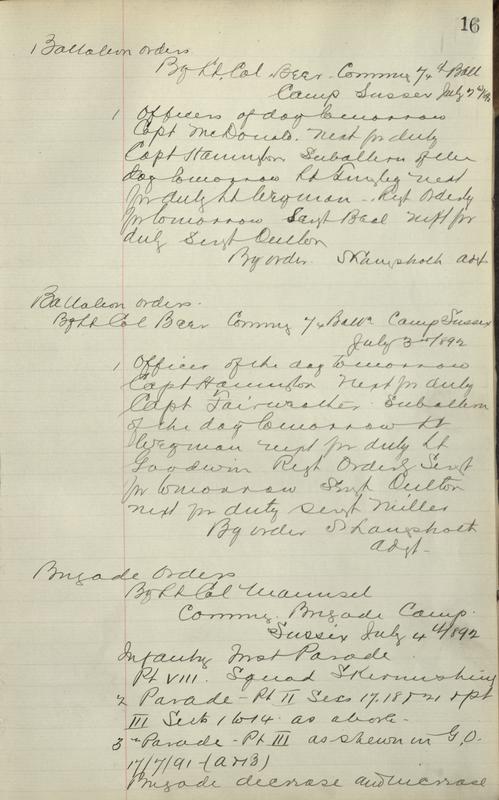 16
1 Battalion Orders
By Lt. Col Beer Commg 74th Batt
Camp Sussex July 2nd/92
1 Officers of day tomorrow
Capt McDonald. next for duty
Capt Harrington Subaltern of the
day tomorrow Lt Langley next
for duty Lt Wegman - Regt Orderly
for tomorrow Sergt Beal next for
duty Sergt Oulton
By order S Langstroth adjt
Battalion Orders.
By Lt Col Beer Commg 74 Battn Camp Sussex
July 3rd 1892
1 Officer of the day tomorrow
Capt Harrington next for duty
Capt Fairweather Subaltern
of the day tomorrow Lt
Wegman next for duty Lt
Goodwin Regt Orderly Sergt
for tomorrow Sergt Oulton
next for duty Sergt Miller
By order S Langstroth
adgt-
Brigade Orders
By Lt Col Maunsel
Commg. Brigade Camp.
Sussex July 4th/1892
Infantry First Parade
Pt VIII. Squad Skirmishing
2 Parade - Pt II Secs 17.18 & 21 & pt
III Sects 1 to 14. as above -
3rd Parade - Pt III as shewn in G.O.
17/7/91 (A & B)
Brigade decrease and increase